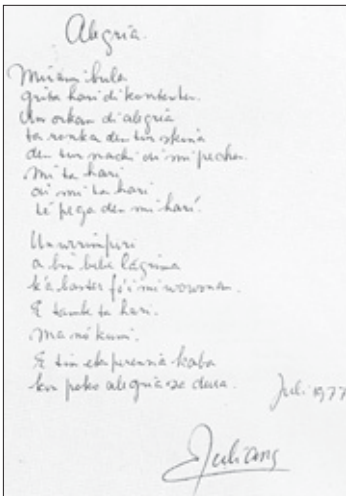 Alegria.
Mira mi bula
grita hari di kontentu.
Un orkan di alegria
ta ronka den tur skina
den tur nachi di mi pechu.
Mi ta hari
ai mi ta hari
te pega den mi hari.
Un wrimpiri
a bin bebe lágrima
k'a basha fo'i mi wowonan.
E tambe ta hari.
Ma nó kumi.
E tin eksperensia kaba
kon poko alegria sa dura.
Juli 1977
EJuliana